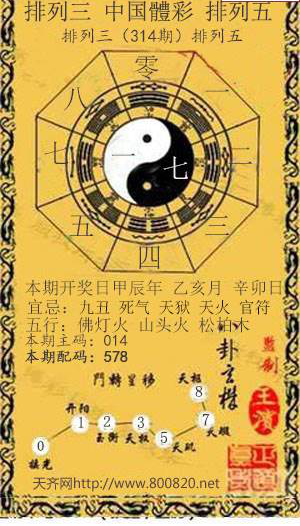 排列三 中国體彩 排列五
排列三（314期）排列五
零
八 一
七 一 七 二
九 三
五 三
四
本期开奖日甲辰年 乙亥月 辛卯日
宜忌：九丑 死气 天狱 天火 官符
五行：佛灯火 山头火 松柏木
本期主码：014
本期配码：578
鬥轉星移
天枢
8
开阳
1 2 3 7
玉衡 天权 天璇
0 5
摇光 天玑
卦玄機
監制
天齐网http://www.800820.net